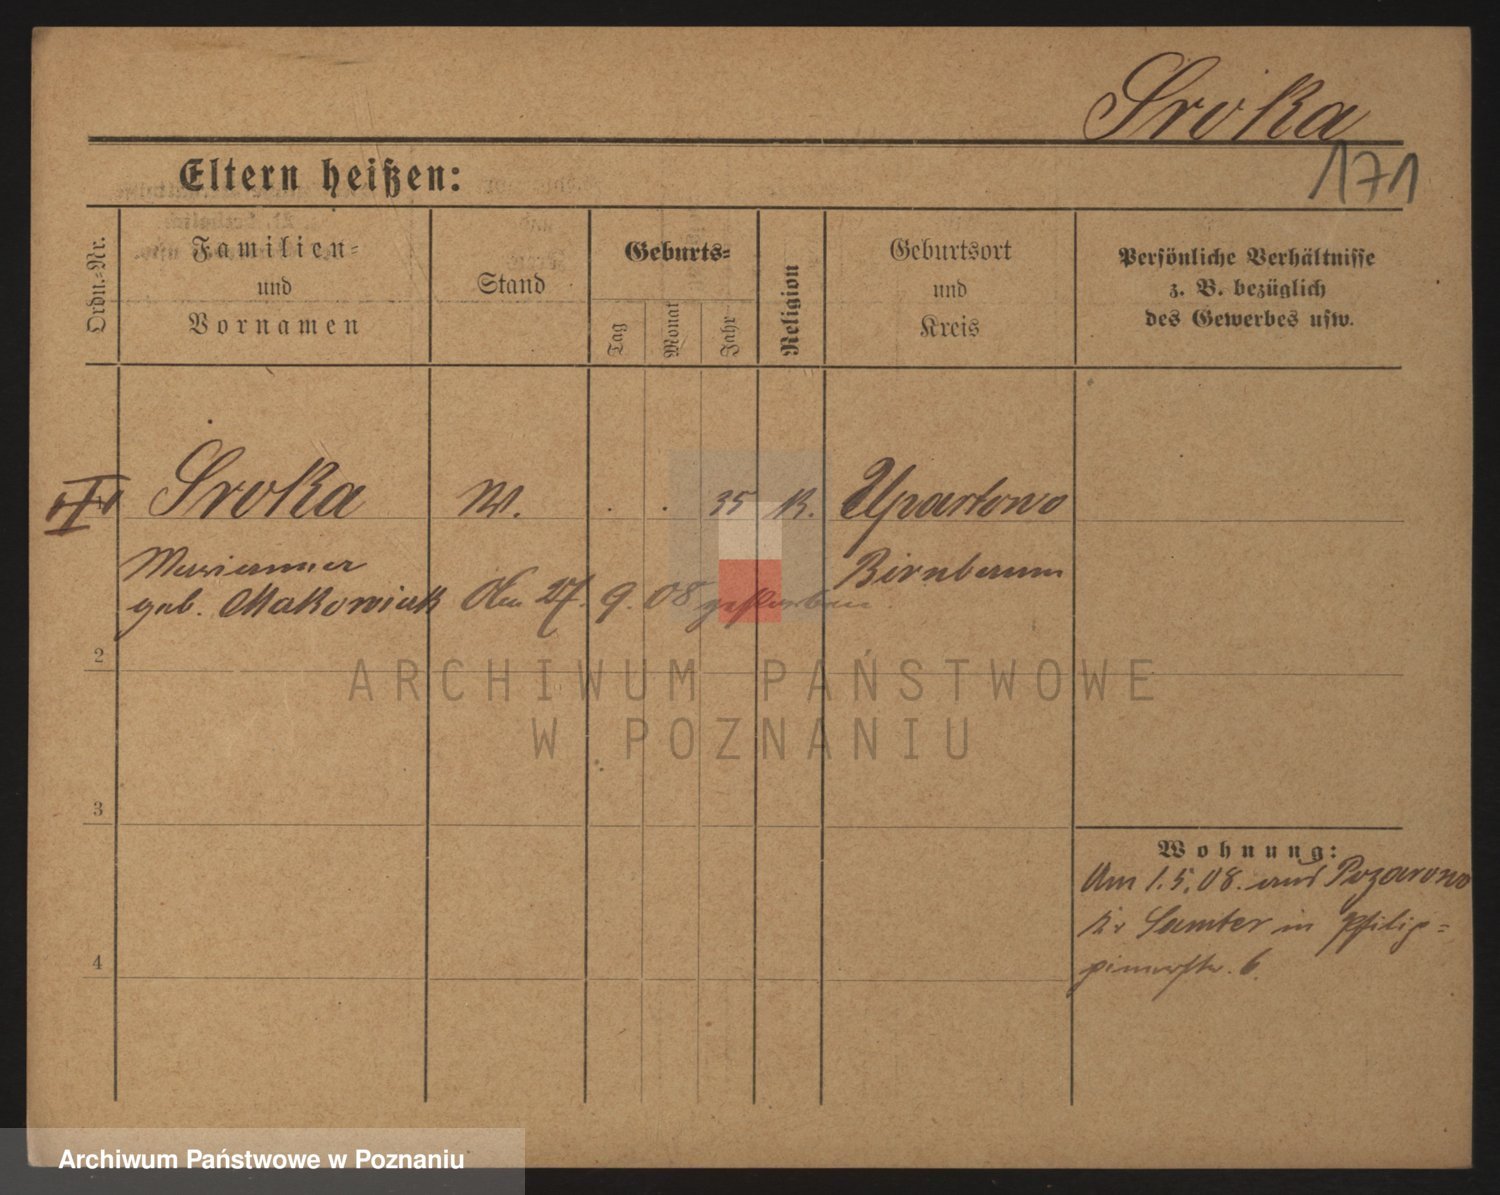 Sroka
171
Eltern heißen:
Ordn.-Nr.
Familien-
und
Vornamen
Stand
Geburts-
Tag
Monat
Jahr
Religion
Geburtsort
und
Kreis
Persönliche Verhältnisse
z. B. bezüglich
des Gewerbes usw.
I
Sroka W. . . 35 K. Upartowo
Marianna Birnbaum
geb. Makowiak Am 27. 9. 08 gestorben
2
3
4
Wohnung:
Am 1.5.08. aus Pozarowo
Kr Samter in Philip=
pinenstr. 6.
ARCHIWUM PAŃSTWOWE
W POZNANIU
Archiwum Państwowe w Poznaniu